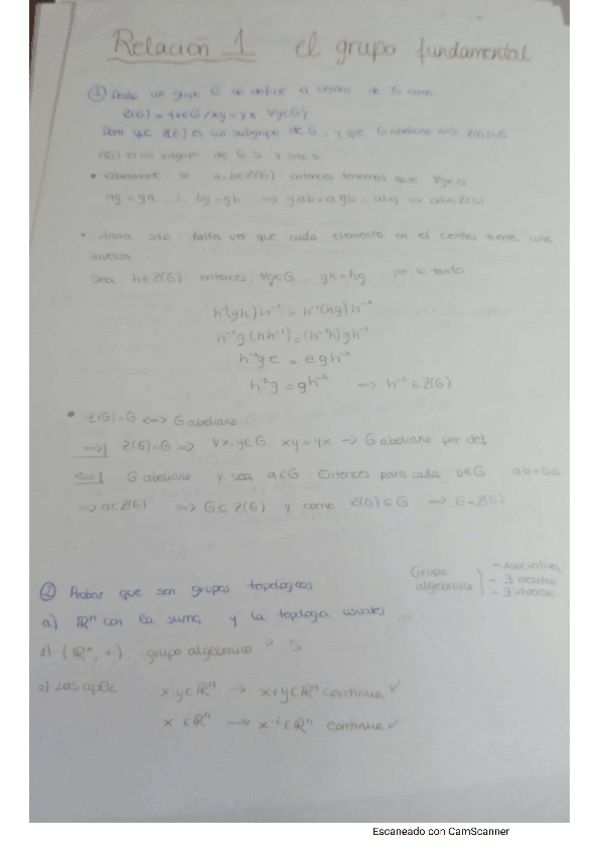 Relación 1 el grupo fundamental
① Dado un grupo G se define el centro de G como
Z(G) = {x∈G / xy = yx ∀y∈G}
Dem que Z(G) es un subgrupo de G, y que G abeliano <=> Z(G)=G
Z(G) es un subgrupo de G si y solo si
• Obviamente si a,b∈Z(G) entonces tenemos que ∀g∈G
ag = ga ; bg = gb => gab = agb = abg => ab∈Z(G)
• Ahora solo falta ver que cada elemento en el centro tiene una
inversa
Sea h∈Z(G) entonces ∀g∈G gh = hg, por lo tanto
h⁻¹(gh)h⁻¹ = h⁻¹(hg)h⁻¹
h⁻¹g(hh⁻¹) = (h⁻¹h)gh⁻¹
h⁻¹ge = egh⁻¹
h⁻¹g = gh⁻¹ => h⁻¹∈Z(G)
• Z(G)=G <=> G abeliano
=>| Z(G)=G => ∀x,y∈G xy=yx => G abeliano por def
<=| G abeliano y sea a∈G Entonces para cada b∈G ab=ba
=> a∈Z(G) => G⊂Z(G) y como Z(G)⊆G => G=Z(G)
② Probar que son grupos topológicos
Grupo algebraico
- Asociativa
- ∃ neutro
- ∃ inverso
a) ℝⁿ con la suma y la topología usuales
1) (ℝⁿ, +) grupo algebraico ? Si
2) Las aplic x,y∈ℝⁿ → x+y∈ℝⁿ continua ✓
x∈ℝⁿ → x⁻¹∈ℝⁿ continua ✓
Escaneado con CamScanner